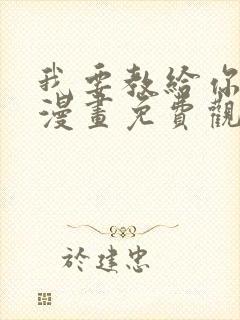 我要教給你
漫畫免費觀
於建忠